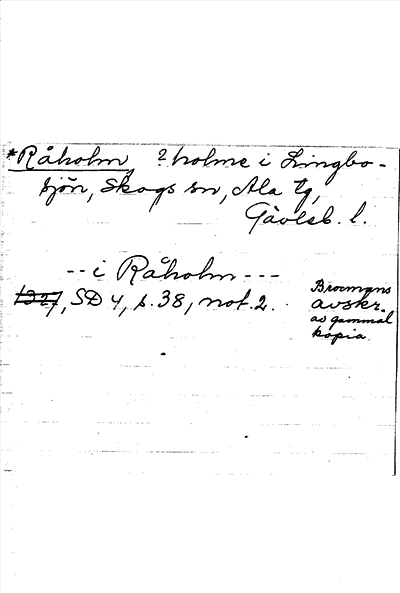 *Råholm ? holme i Lingbo-
sjön, Skogs sn, Ala tg,
Gävleb. l.
-- i Råholm ---
1327, SD 4, s. 38, not. 2.
Broomans
avskr.
av gammal
kopia